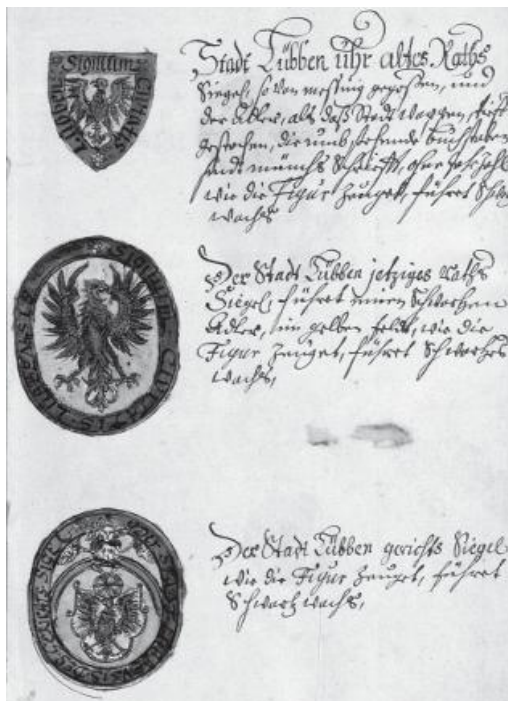 Sigillum Civitatis
Stadt Lübben uhr altes Raths
Siegel, so von messing gegossen, und
der Adler, als daß Stadt wappen,
gestochen, die umb stehende buchstaben
sindt münchs Schrifft, ohne Jahrzahl
wie die Figur Zeuget, führet Schw
wachs
Sigillum Civitatis Lubbensis
Der Stadt Lübben jetziges Raths
Siegel, führet einen Schwartzen
Adler, im gelben feldt, wie die
Figur Zeuget, führet Schwartzes
wachs,
Der Stadt Lübben gerichts Siegel
wie die Figur Zeuget, führet
Schwartz wachs,